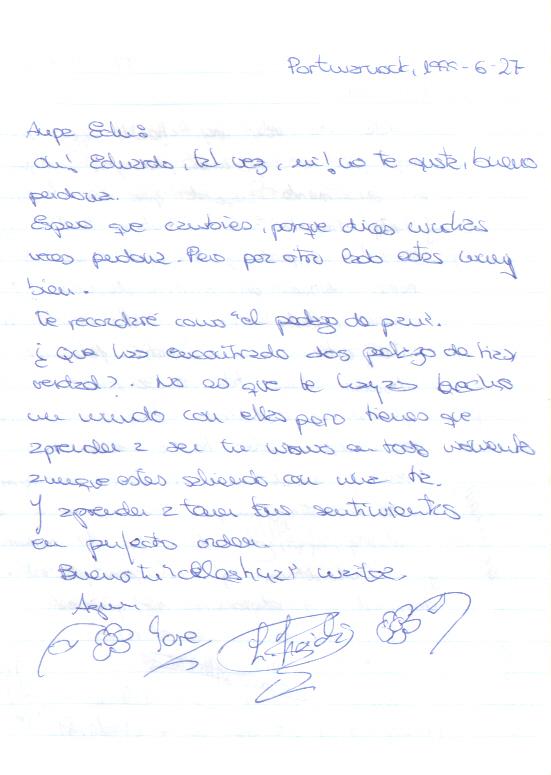 Portmarnock, 1995-6-27
Aupa Edu:
Ah! Eduardo, tal vez, no te guste, bueno
perdona.
Espero que cambies, porque dices muchas
veces perdona. Pero por otro lado estas muy
bien.
Te recordaré como "el pedazo de pan".
¿Que has encontrado dos pedazo de tias
verdad?. No es que te hayas hecho
un mundo con ellas pero tienes que
aprender a ser tu mismo en todo momento
aunque estes saliendo con una tia.
Y aprender a tener tus sentimientos
en perfecto orden.
Bueno tu maitea.
Agur
Iore